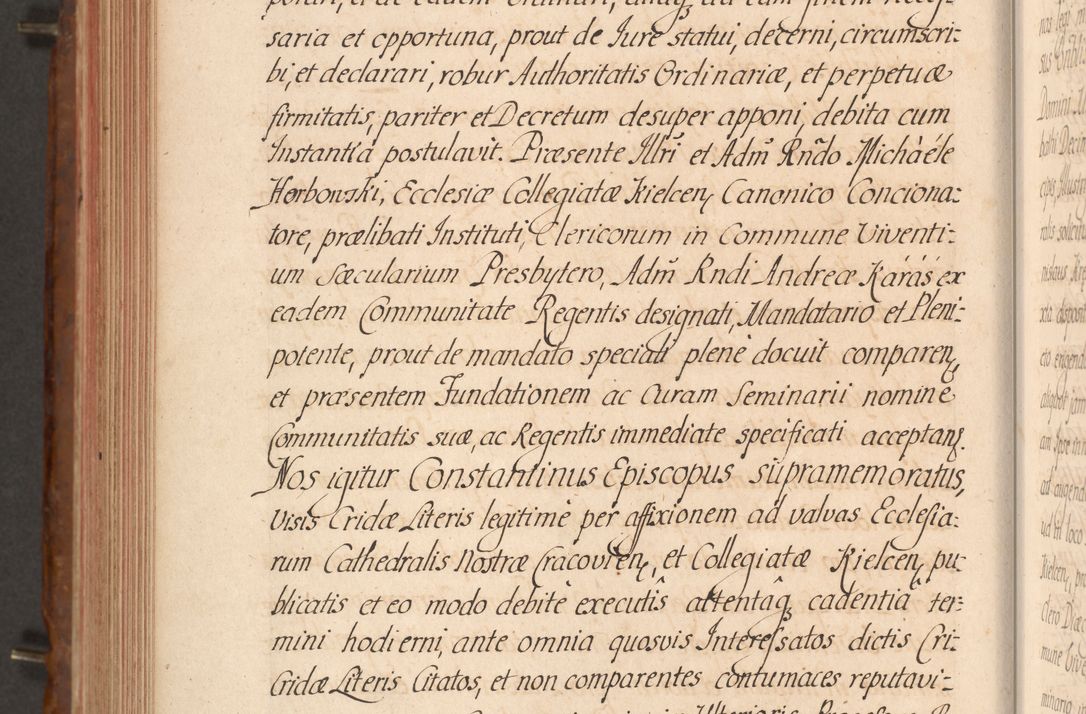 saria et opportuna, prout de Iure statui, decerni, circumscri:
bi, et declarari, robur Authoritatis Ordinariæ, et perpetuæ
firmitatis, pariter et Decretum desuper apponi, debita cum
Instantia postulavit. Præsente Illri et Adm̃ Rñdo Michaéle
Horbowski, Ecclesiæ Collegiatæ Kielcen, Canonico Conciona:
tore, prælibati Instituti, Clericorum in Commune Viventi:
um Sæcularium Presbytero, Adm̃ Rndi Andreæ Karaś ex
eadem Communitate Regentis designati, Mandatario et Pleni:
potente, prout de mandato speciali plenè docuit comparen,
et præsentem Fundationem ac Curam Seminarii nominè
Communitatis suæ, ac Regentis immediate specificati acceptan.
Nos igitur Constantinus Episcopus supramemoratus,
Visis Cridæ Literis legitimè per affixionem ad valvas Ecclesia:
rum Cathedralis Nostræ Cracovien, et Collegiatæ Kielcen, pu:
blicatis et eo modo debitè executis attentaq, cadentiâ ter:
mini hodierni, ante omnia quosvis Interessatos dictis Cri:
Cridæ Literis Citatos, et non comparentes contumaces reputavi: